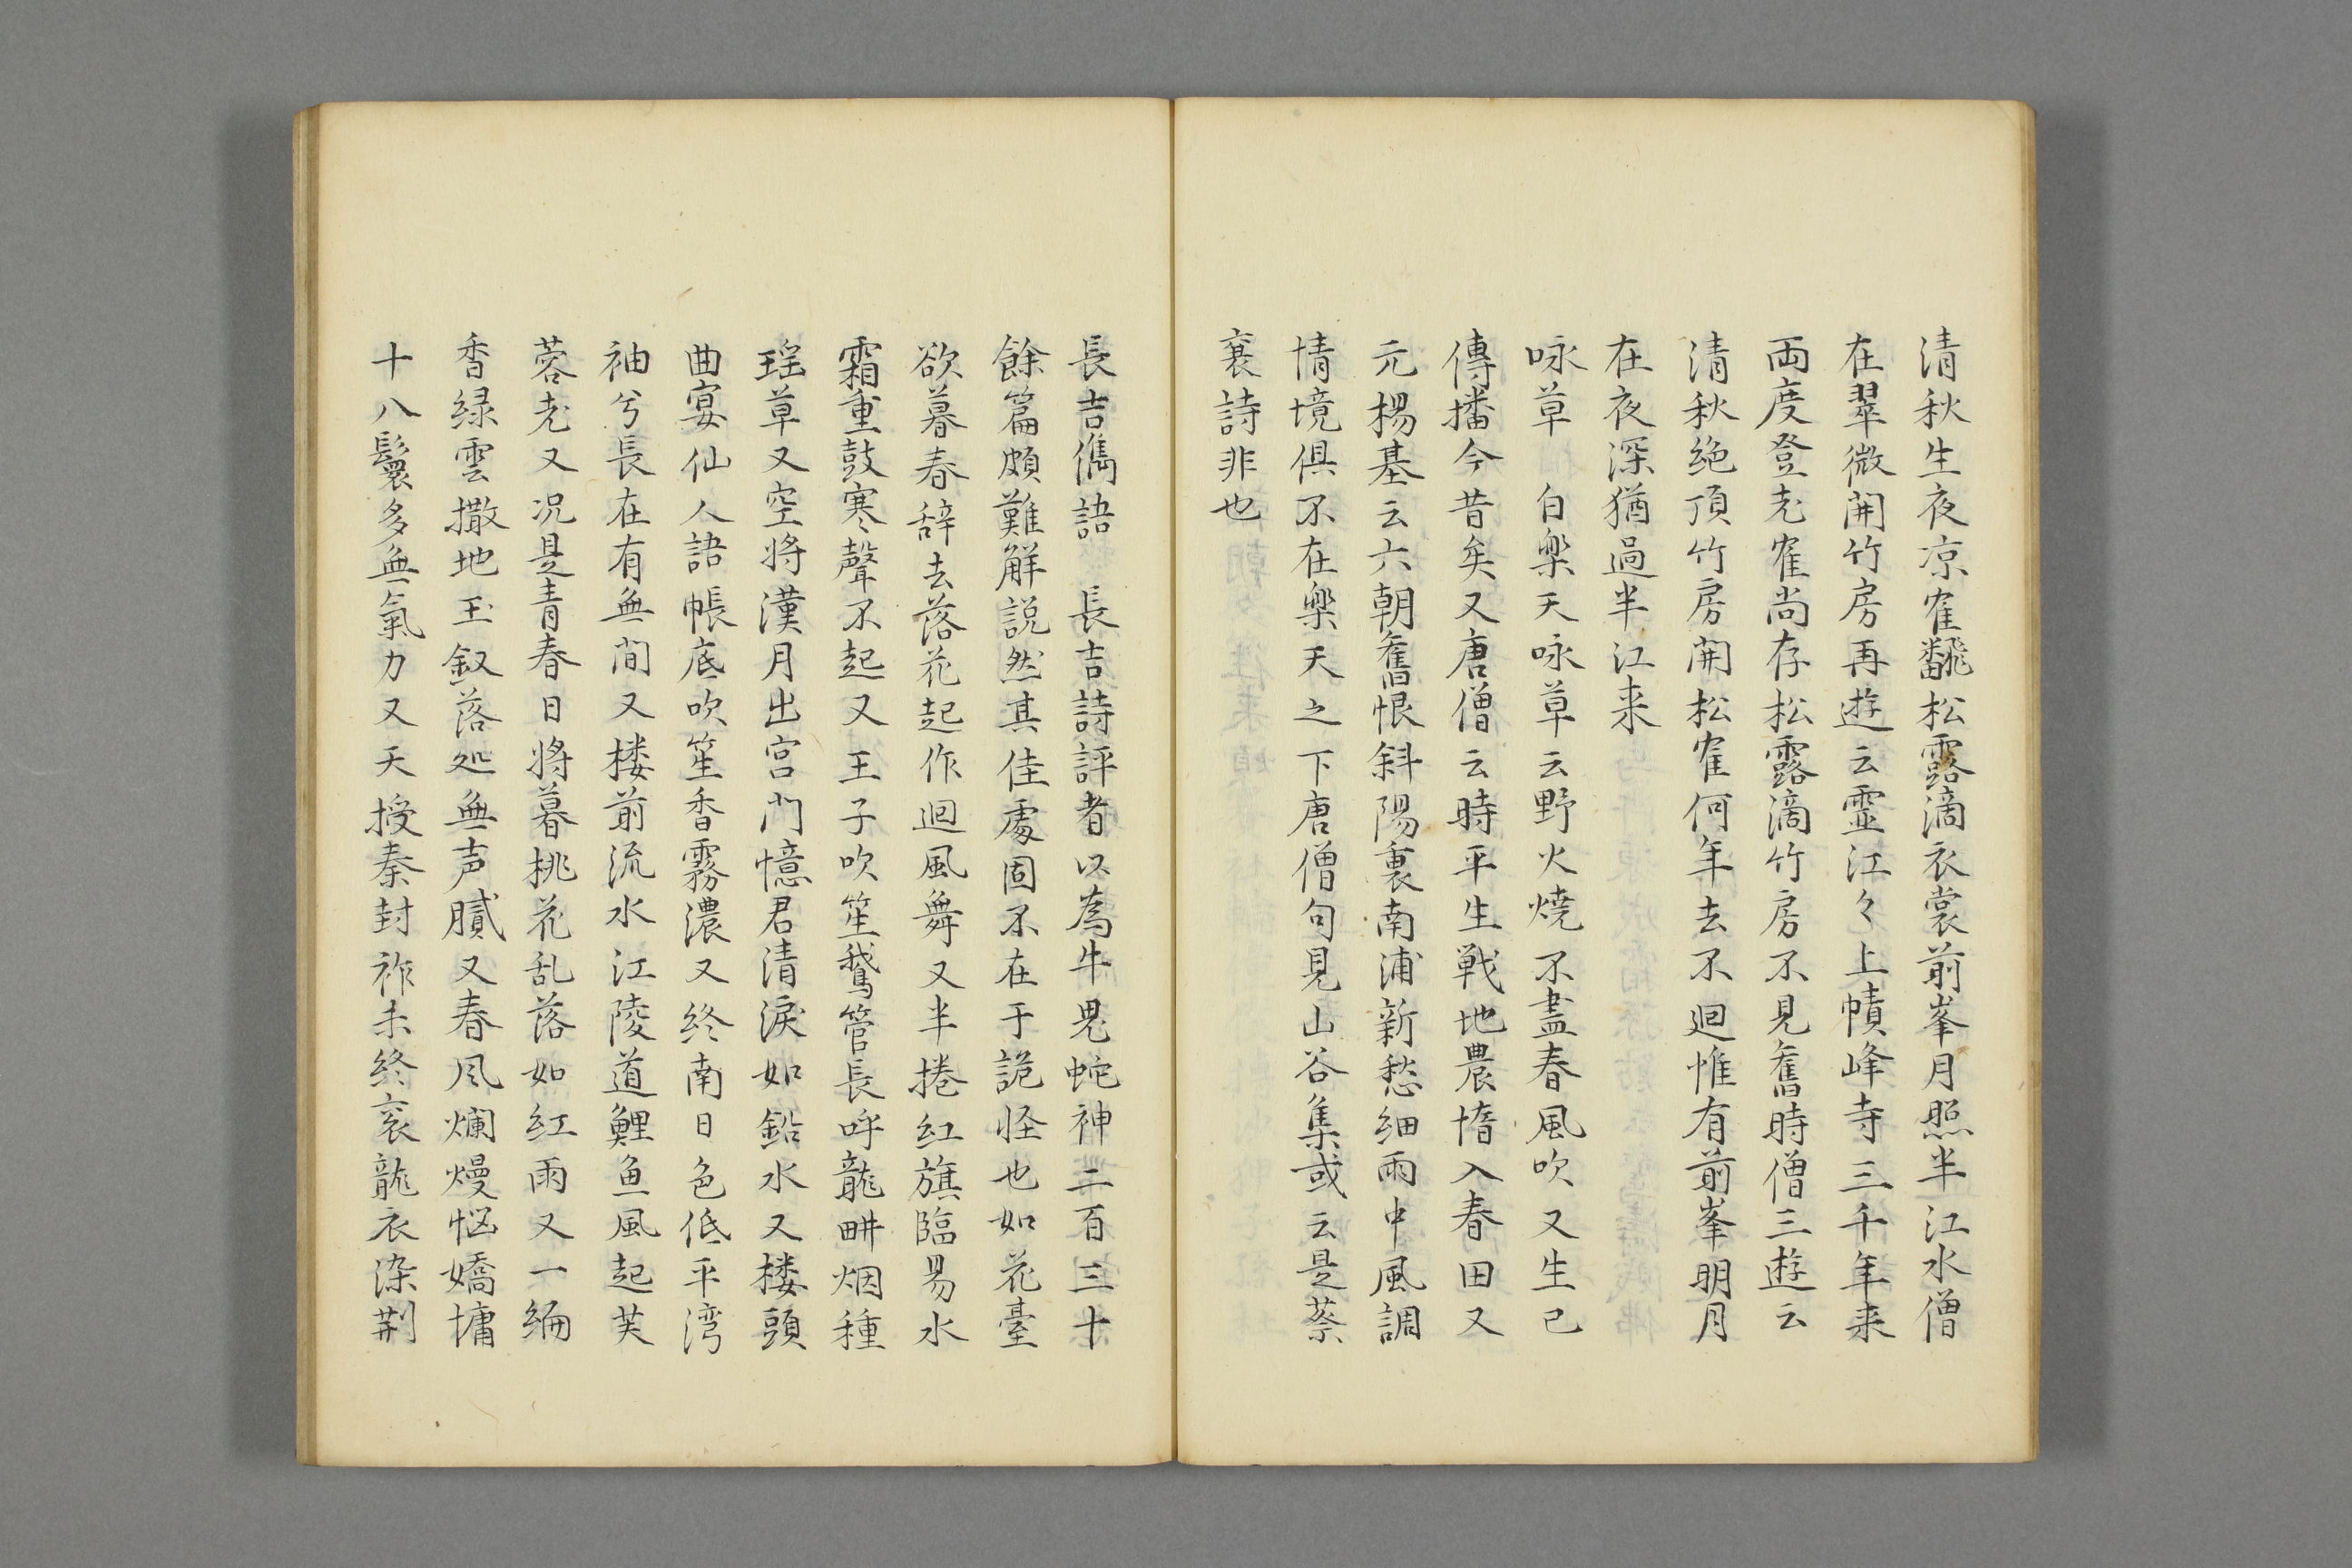 清秋生夜凉寉飜松露滴衣裳前峯月照半江水僧
在翠微開竹房再遊云霊江々上幘峰寺三千年来
両度登老寉尚存松露滴竹房不見舊時僧三遊云
清秋絶頂竹房開松寉何年去不迴惟有前峯明月
在夜深猶過半江来
咏草　白楽天咏草云野火燒不盡春風吹又生已
傳播今昔矣又唐僧云時平生戦地農惰入春田又
元楊基云六朝舊恨斜陽裏南浦新愁細雨中風調
情境俱不在楽天之下唐僧句見山谷集或云是蔡
襄詩非也
長吉儁語　長吉詩評者以為牛鬼蛇神二百三十
餘篇頗難解説然其佳處固不在于詭怪也如花臺
欲暮春辞去落花起作迴風舞又半捲紅旗臨易水
霜重鼓寒聲不起又王子吹笙鵞管長呼龍畊烟種
瑶草又空将漢月出宮門憶君清淚如鉛水又楼頭
曲宴仙人語帳底吹笙香霧濃又終南日色低平湾
袖兮長在有無間又楼前流水江陵道鯉魚風起芙
蓉老又况是青春日将暮桃花乱落如紅雨又一編
香緑雲撒地玉釵落処無声膩又春風爛熳悩嬌慵
十八鬟多無氣力又天授秦封祚未終衮龍衣染荆